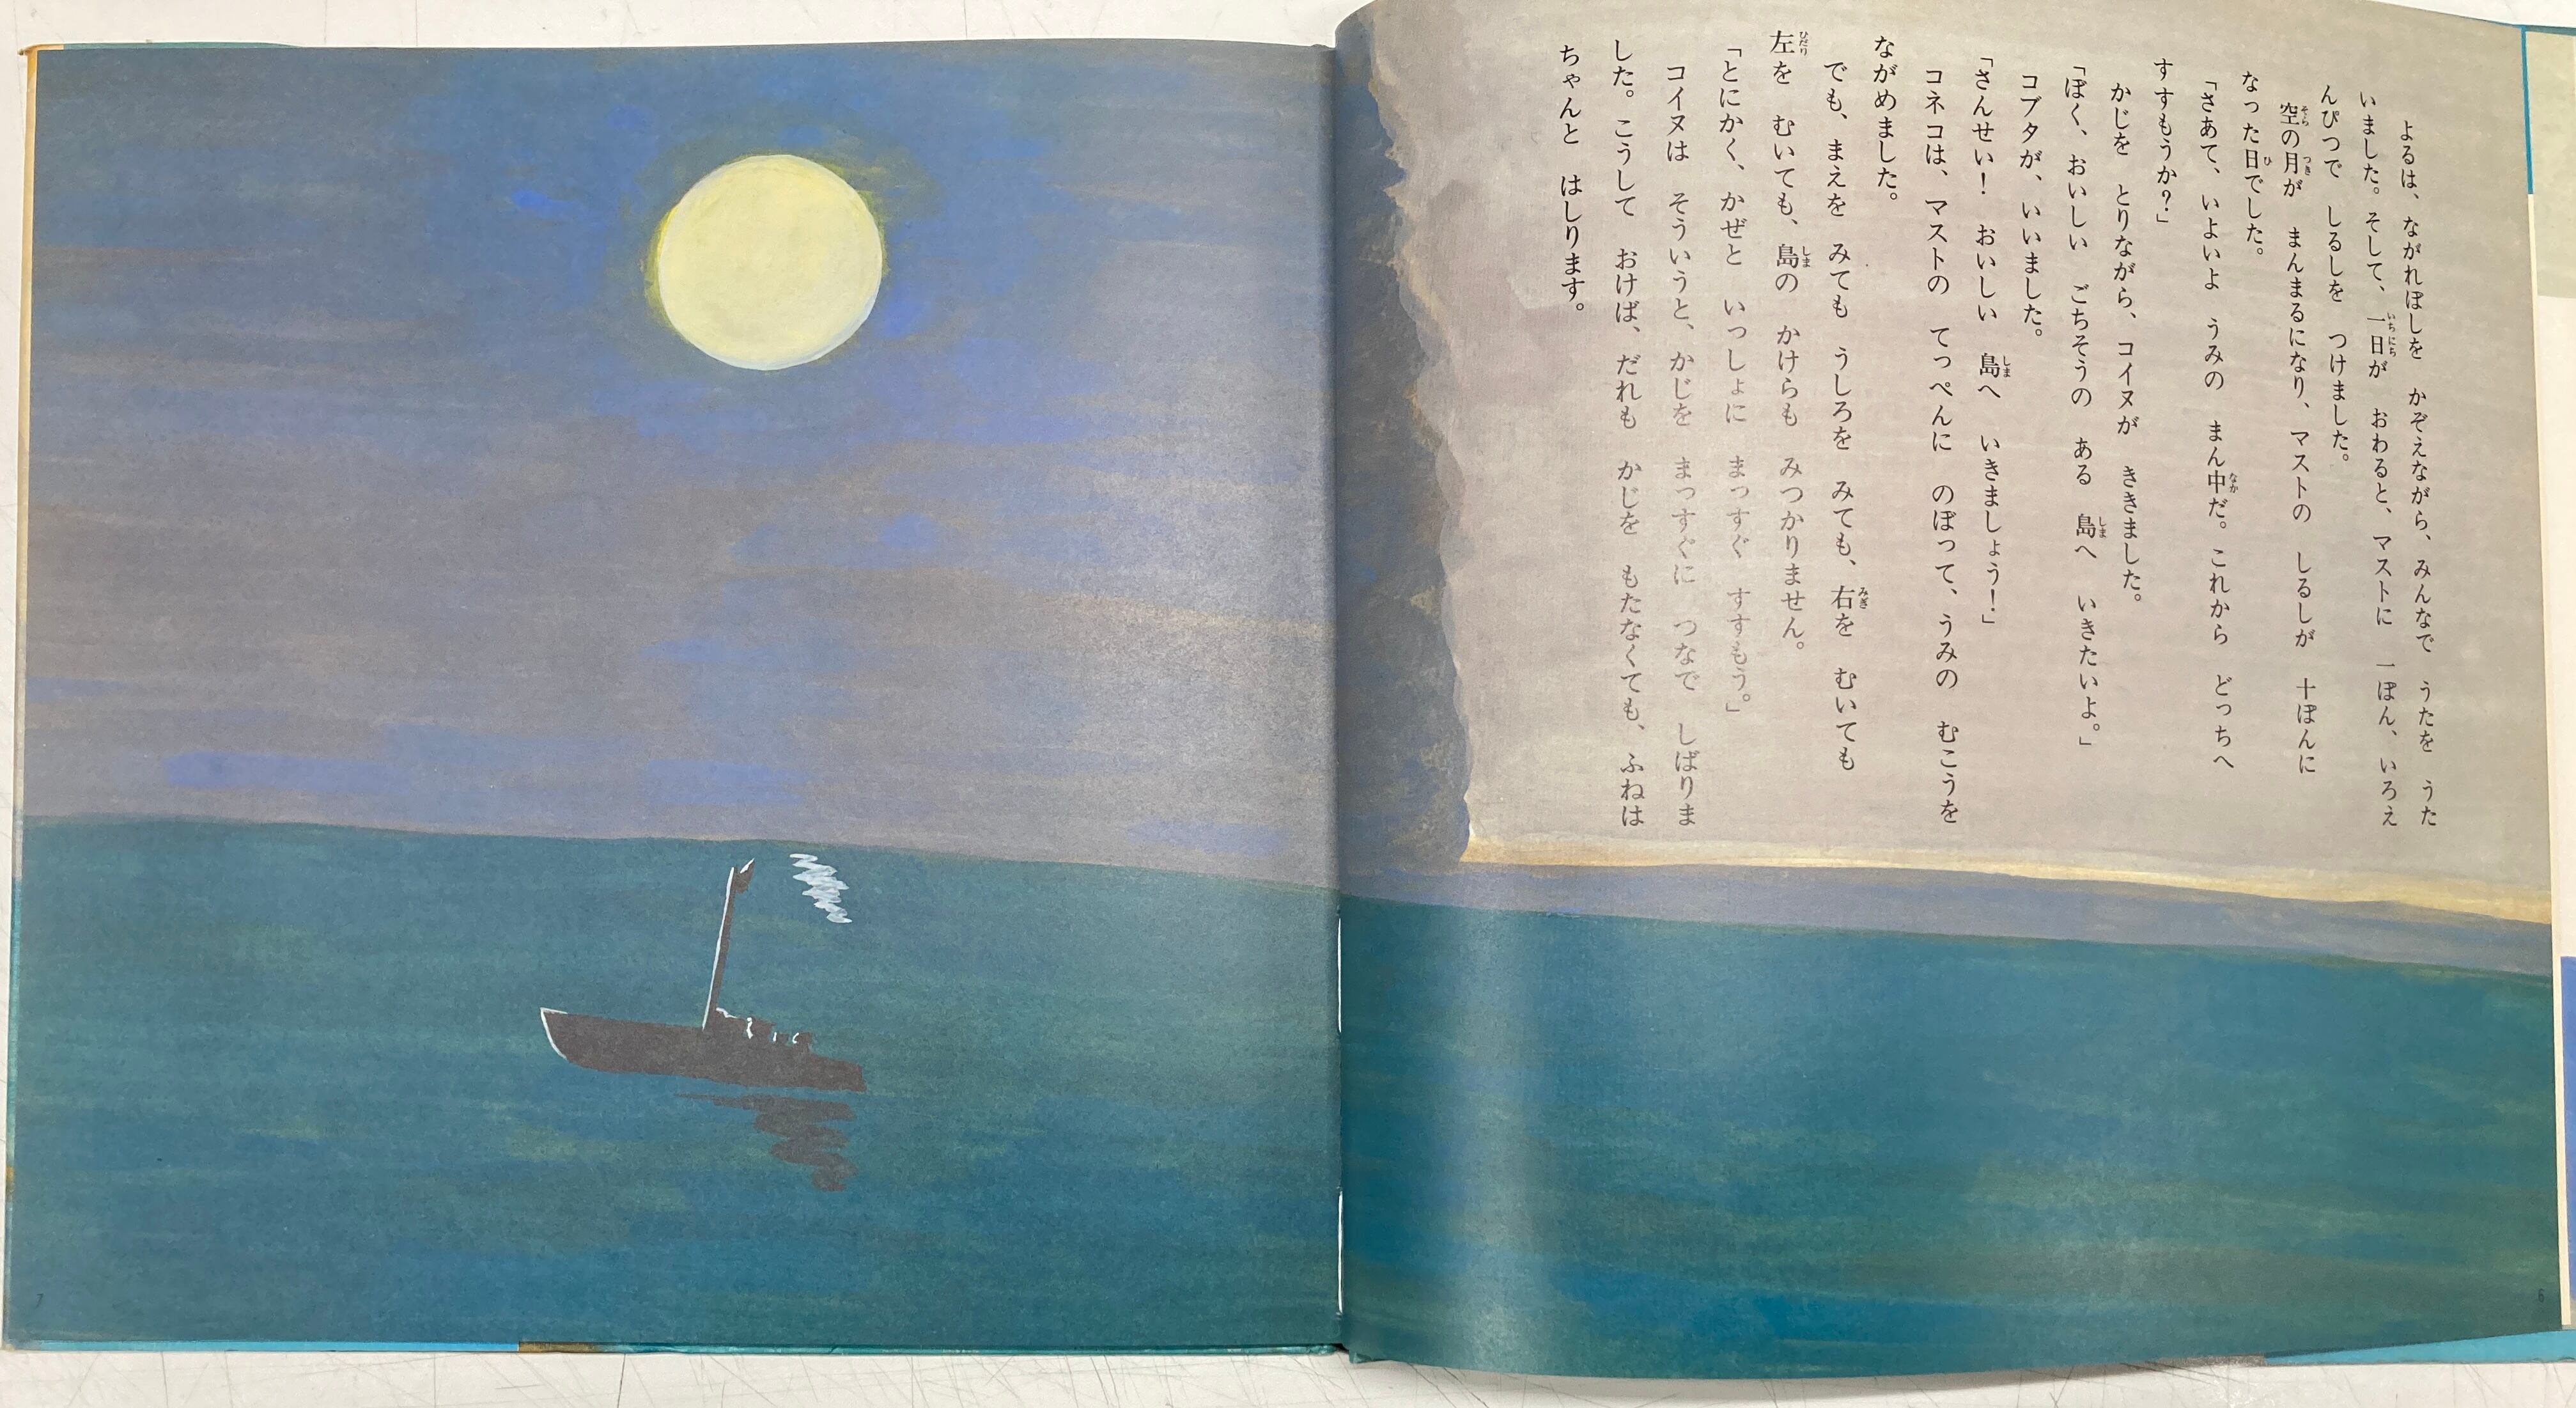 よるは、ながれぼしを　かぞえながら、みんなで　うたを　うた
いました。そして、一日が　おわると、マストに　一ぽん、いろえ
んぴつで　しるしを　つけました。
空の月が　まんまるになり、マストの　しるしが　十ぽんに
なった日でした。
「さあて、いよいよ　うみの　まん中だ。これから　どっちへ
すすもうか？」
かじを　とりながら、コイヌが　ききました。
「ぼく、おいしい　ごちそうの　ある　島へ　いきたいよ。」
コブタが、いいました。
「さんせい！　おいしい　島へ　いきましょう！」
コネコは、マストの　てっぺんに　のぼって、うみの　むこうを
ながめました。
でも、まえを　みても　うしろを　みても、右を　むいても
左を　むいても、島の　かけらも　みつかりません。
「とにかく、かぜと　いっしょに　まっすぐ　すすもう。」
コイヌは　そういうと、かじを　まっすぐに　つないで　しばりま
した。こうして　おけば、だれも　かじを　もたなくても、ふねは
ちゃんと　はしります。
7
6